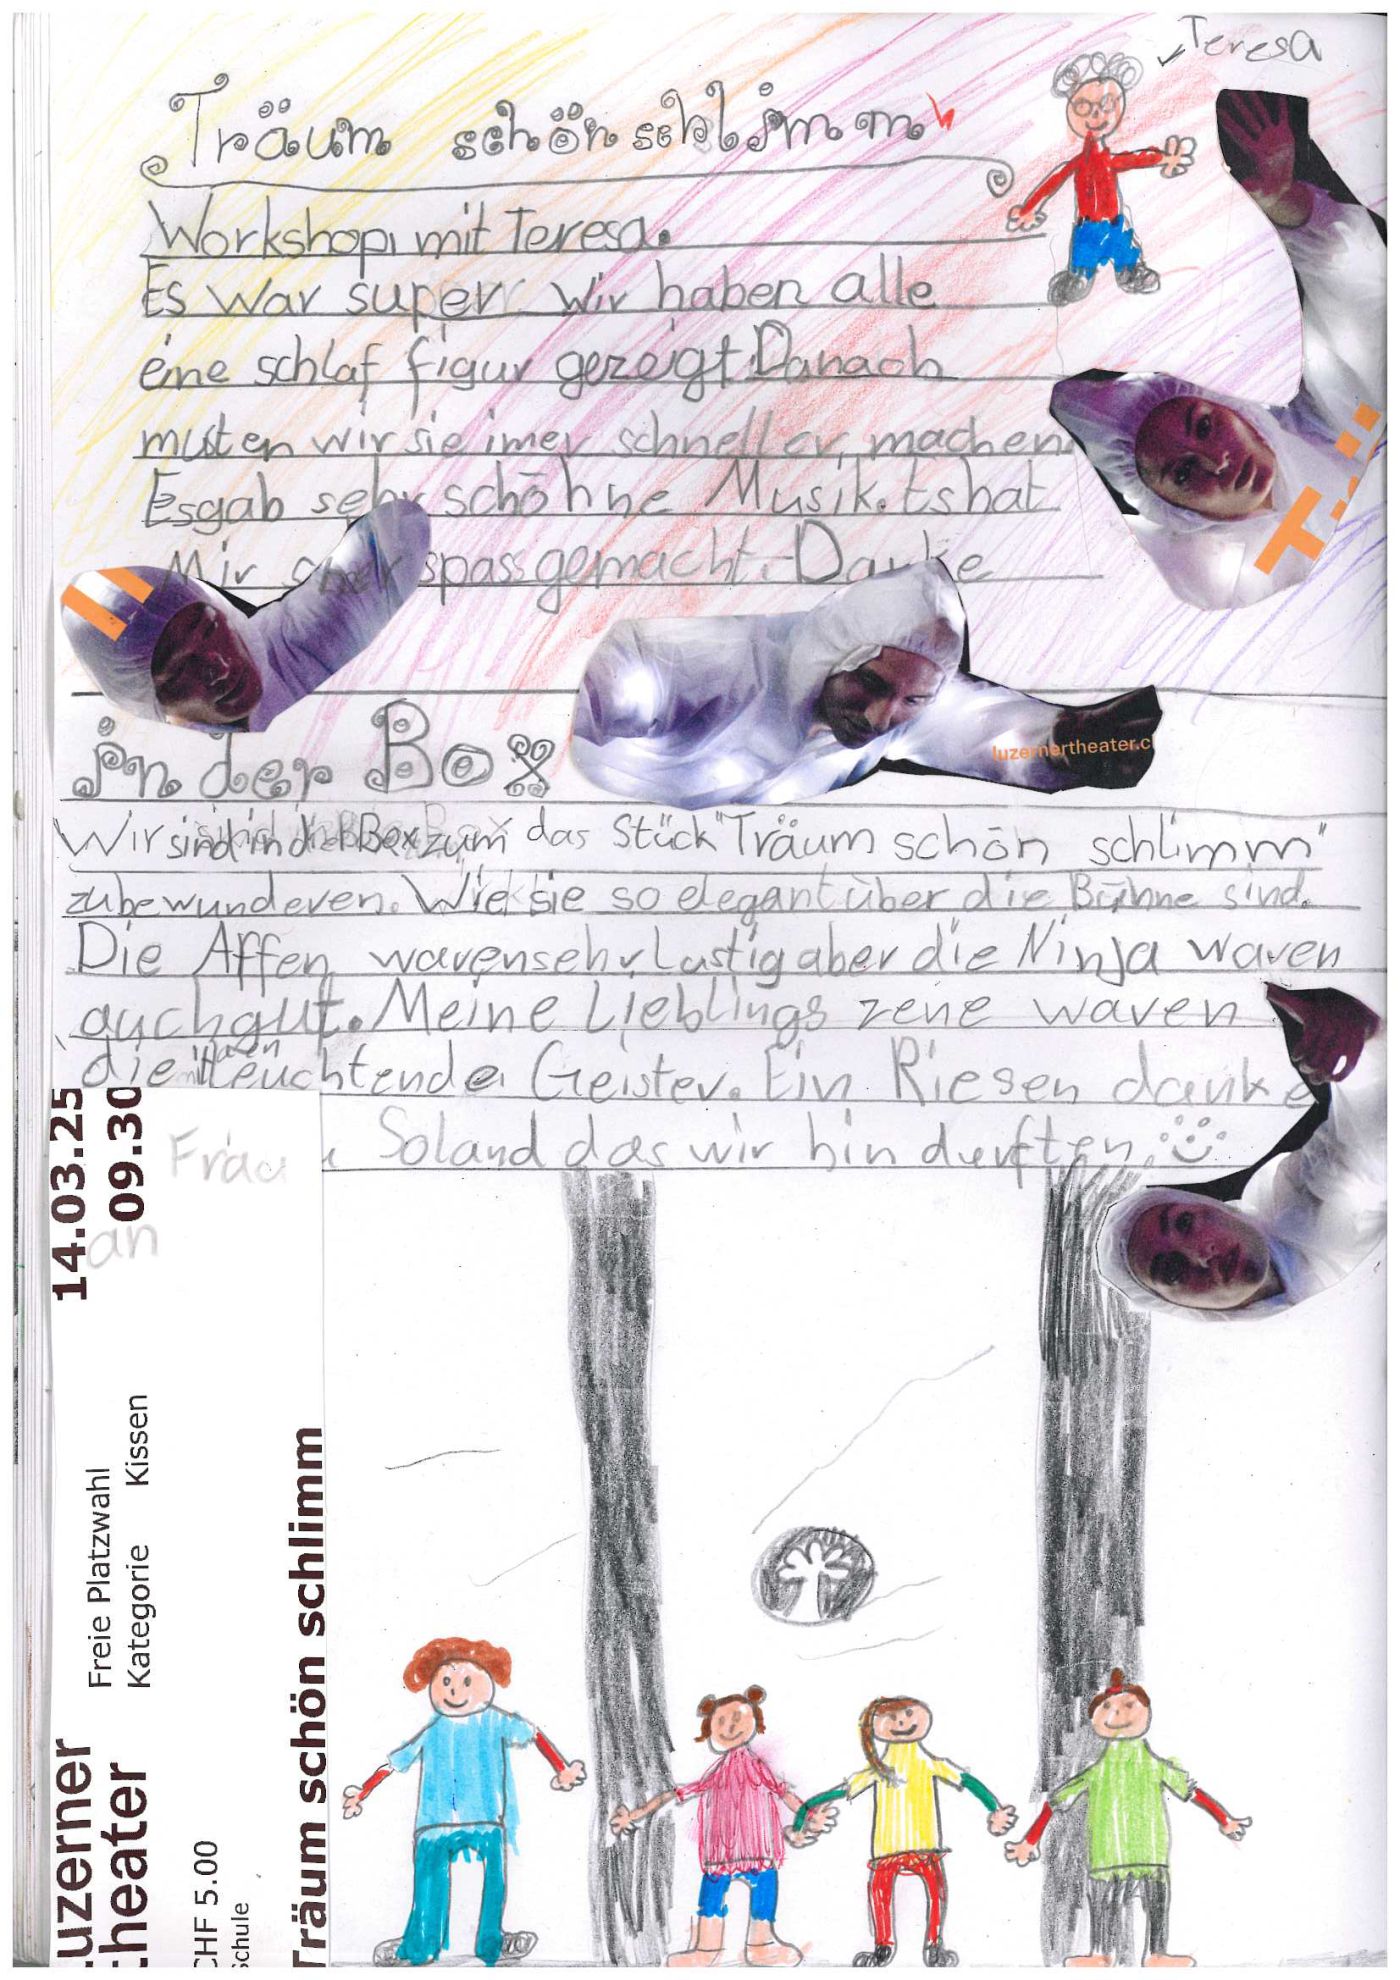 Teresa
Träum schön schlimm
Workshop mit Teresa.
Es war super wir haben alle
eine schlaf figur gezeigt. Danach
musten wir sie imer schneller machen
Es gab sehr schöhne Musik. Es hat
Mir aber spass gemacht. Danke
in der Box
luzernertheater.c
Wir sind in der Box zum das Stück "Träum schön schlimm"
zubewunderen. Wie sie so elegant über die Bühne sind.
Die Affen waren sehr Lustig aber die Ninja waren
auch gut. Meine Lieblings zene waren
die leuchtende Geister. Ein Riesen danke
an Frau Soland das wir hin durften.
14.03.25
09.30
Freie Platzwahl
Kategorie Kissen
uzerner
theater
CHF 5.00
Schule
Träum schön schlimm